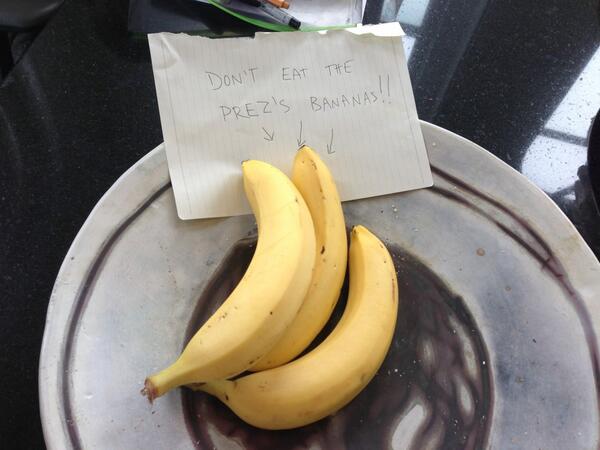 DON'T EAT THE
PREZ'S BANANAS!!